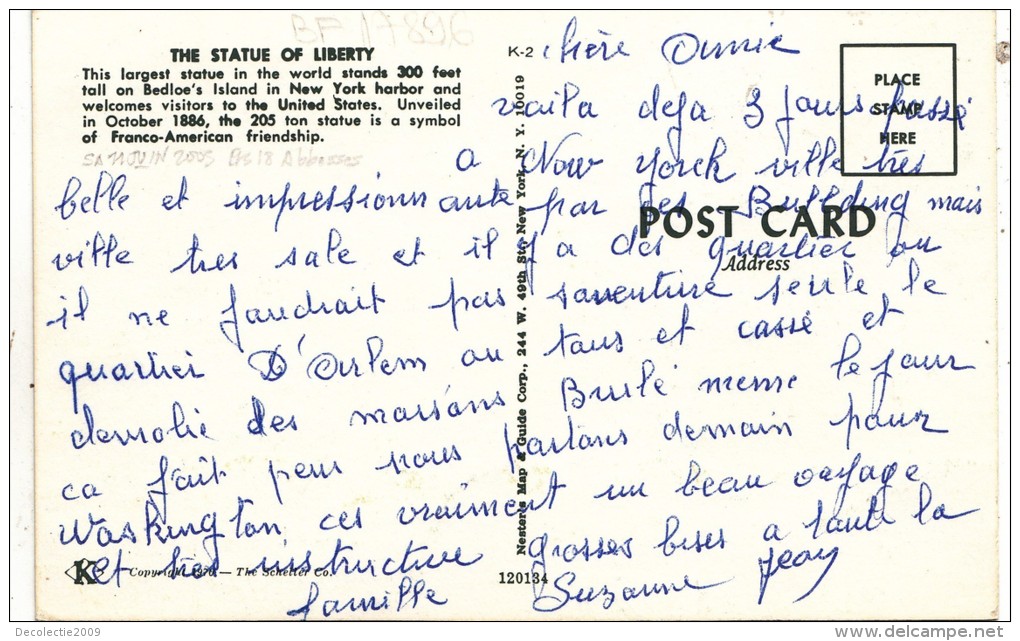 BF 17896
THE STATUE OF LIBERTY
This largest statue in the world stands 300 feet
tall on Bedloe's Island in New York harbor and
welcomes visitors to the United States. Unveiled
in October 1886, the 205 ton statue is a symbol
of Franco-American friendship.
K-2
PLACE
STAMP
HERE
POST CARD
Address
Nester's Map & Guide Corp., 244 W. 49th St., New York, N. Y. 10019
chère Annie
voila deja 3 jours passé
a New Yorck ville très
belle et impressionnante par des Bullding mais
ville tres sale et il y a des quartier ou
il ne faudrait pas saventure seule le
quartier D'Orlem ou tous et cassé et
demolie des maisons Brulé meme le jour
ca fait peur nous partons demain pour
Waskington, ces vraiment un beau voyage
et tres instructive grosses bises a toute la
famille Suzanne Jean
K
Copyright 1970 — The Scheller Co.
120134
Decolectie2009
delcampe.net